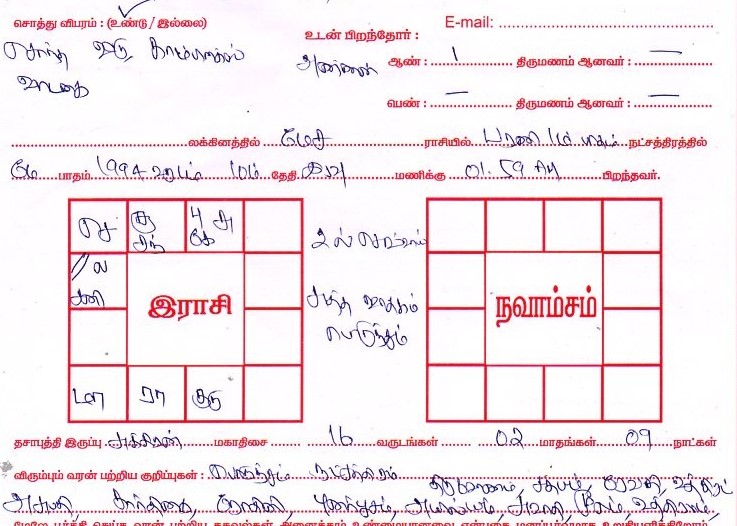 சொத்து விபரம் : (உண்டு / இல்லை)
சொந்த வீடு
உடன் பிறந்தோர் :
E-mail:
அண்ணன்
ஆண் : 1 திருமணம் ஆனவர் : —
பெண் : — திருமணம் ஆனவர் : —
லக்கினத்தில் மேச ராசியில் பரணி 1ம் பாதம் நட்சத்திரத்தில்
மே பாதம் 1994 வருடம் 10ம் தேதி இரவு மணிக்கு 01.59 AM பிறந்தவர்.
செ
சூ
சந்
பு
கே
ல
சனி
இராசி
மா
ரா
குரு
நவாம்சம்
சுத்த ஜாதகம்
பொருந்தும்
தசாபுத்தி இருப்பு சுக்கிரன் மகாதிசை 16 வருடங்கள் 02 மாதங்கள் 09 நாட்கள்
விரும்பும் வரன் பற்றிய குறிப்புகள் : பொருந்தும் நட்சத்திரம் திருவோணம், சதயம், ரேவதி,
அசுபதி, கார்த்திகை, ரோகிணி, புனர்பூசம், ஆயில்யம், சுவாதி, உத்திராடம்,